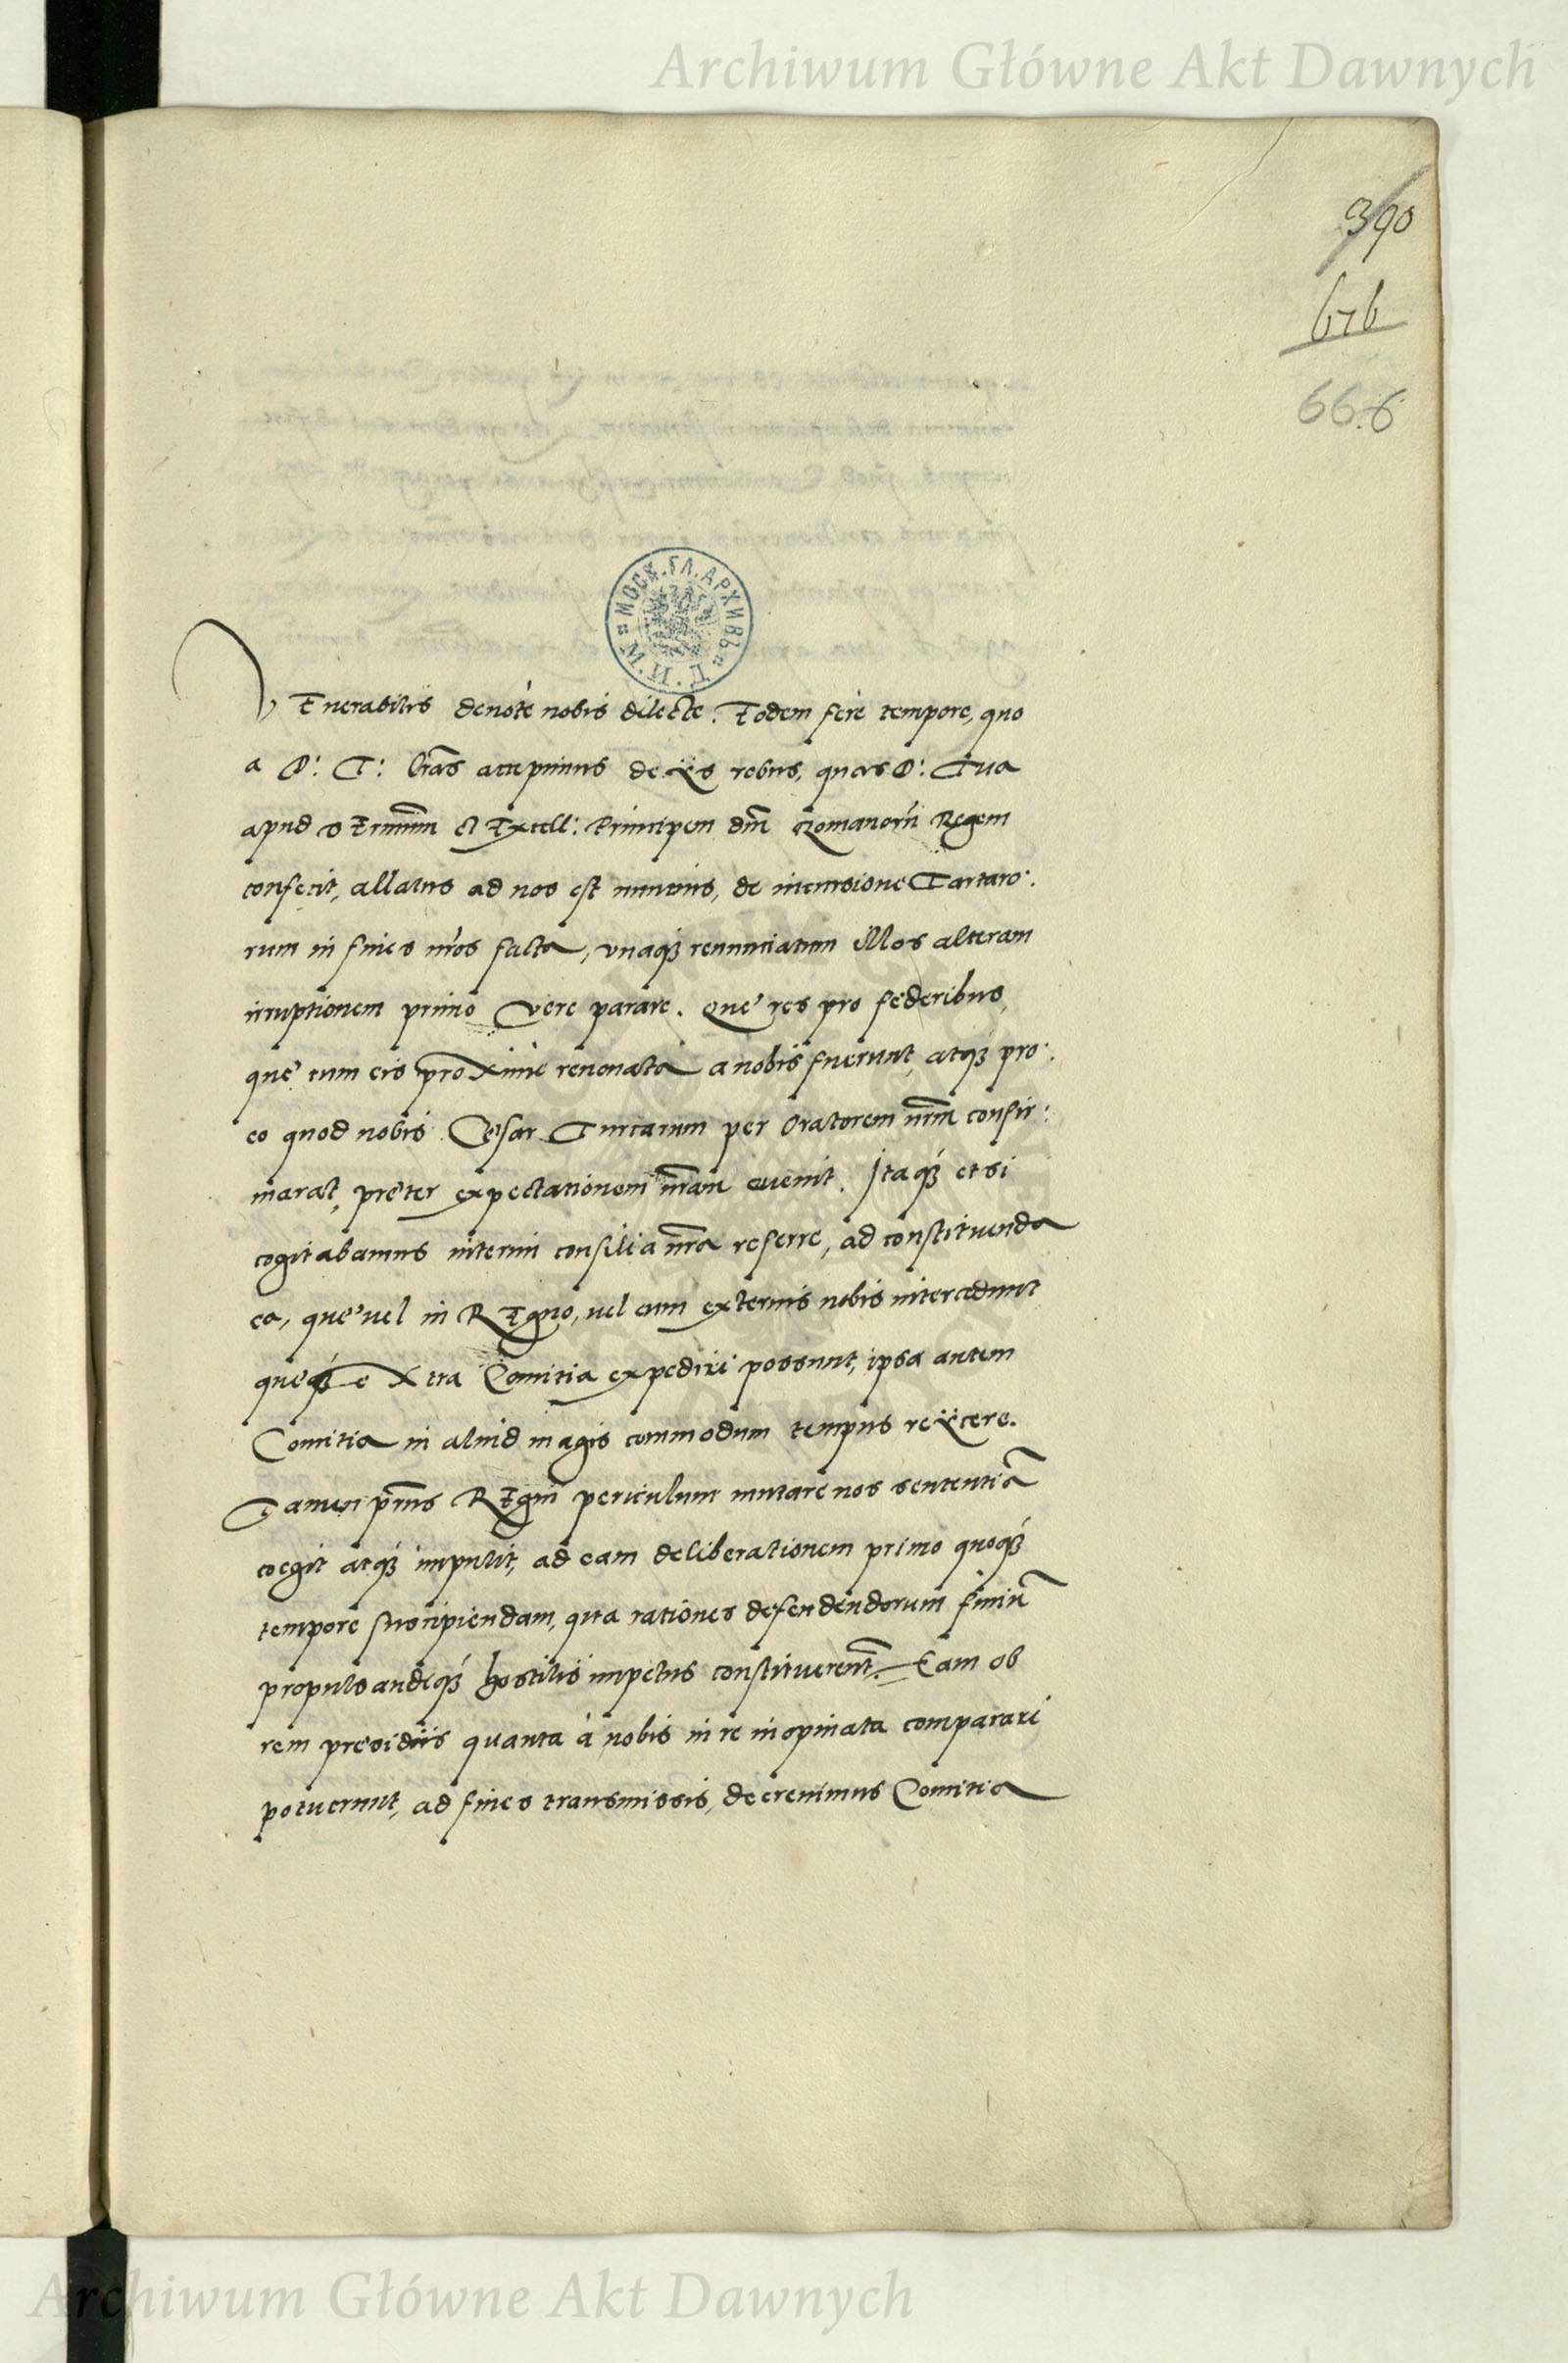 Archiwum Główne Akt Dawnych
390
676
666
МОСК. ГЛ. АРХИВЪ М. И. Д.
VEnerabilis deuotè nobis dilecte. Eodem ferè tempore, quo
a D: T: l̃ras accepimus de ijs rebus, quas D: Tua
apud SErmũm et Excell: Principem dñm Romanorũ Regem
confecit, allatus ad nos est nuncius, de incursione Tartaro:
rum in fines nr̃os facta, vnaq3 renunciatum illos alteram
irruptionem primo Vere parare. Que' res pro federibus,
que' cum eis proxime renouata a nobis fuerunt, atq3 pro:
eo quod nobis Cesar Turcarum per Oratorem nrm̃ confir:
marat, preter expectationem nrãm euenit. Itaq3 etsi
cogitabamus interim consilia nrã referre, ad constituenda
ea, que' uel in REgno, uel cum externis nobis intercedunt
que'q3 extra Comitia expediri possunt, ipsa autem
Comitia in aliud magis commodum tempus reijcere.
Tamen pñs REgni periculum mutare nos sententiã
coegit atq3 impulit, ad eam deliberationem primo quoq3
tempore suscipiendam, qua rationes defendendorum finiũ
propulsandiq3 hostilis impetus constituerent̃. Eam ob
rem presidiis quanta à nobis in re inopinata comparari
potuerunt, ad fines transmissis, decreuimus Comitia
Archiwum Główne Akt Dawnych